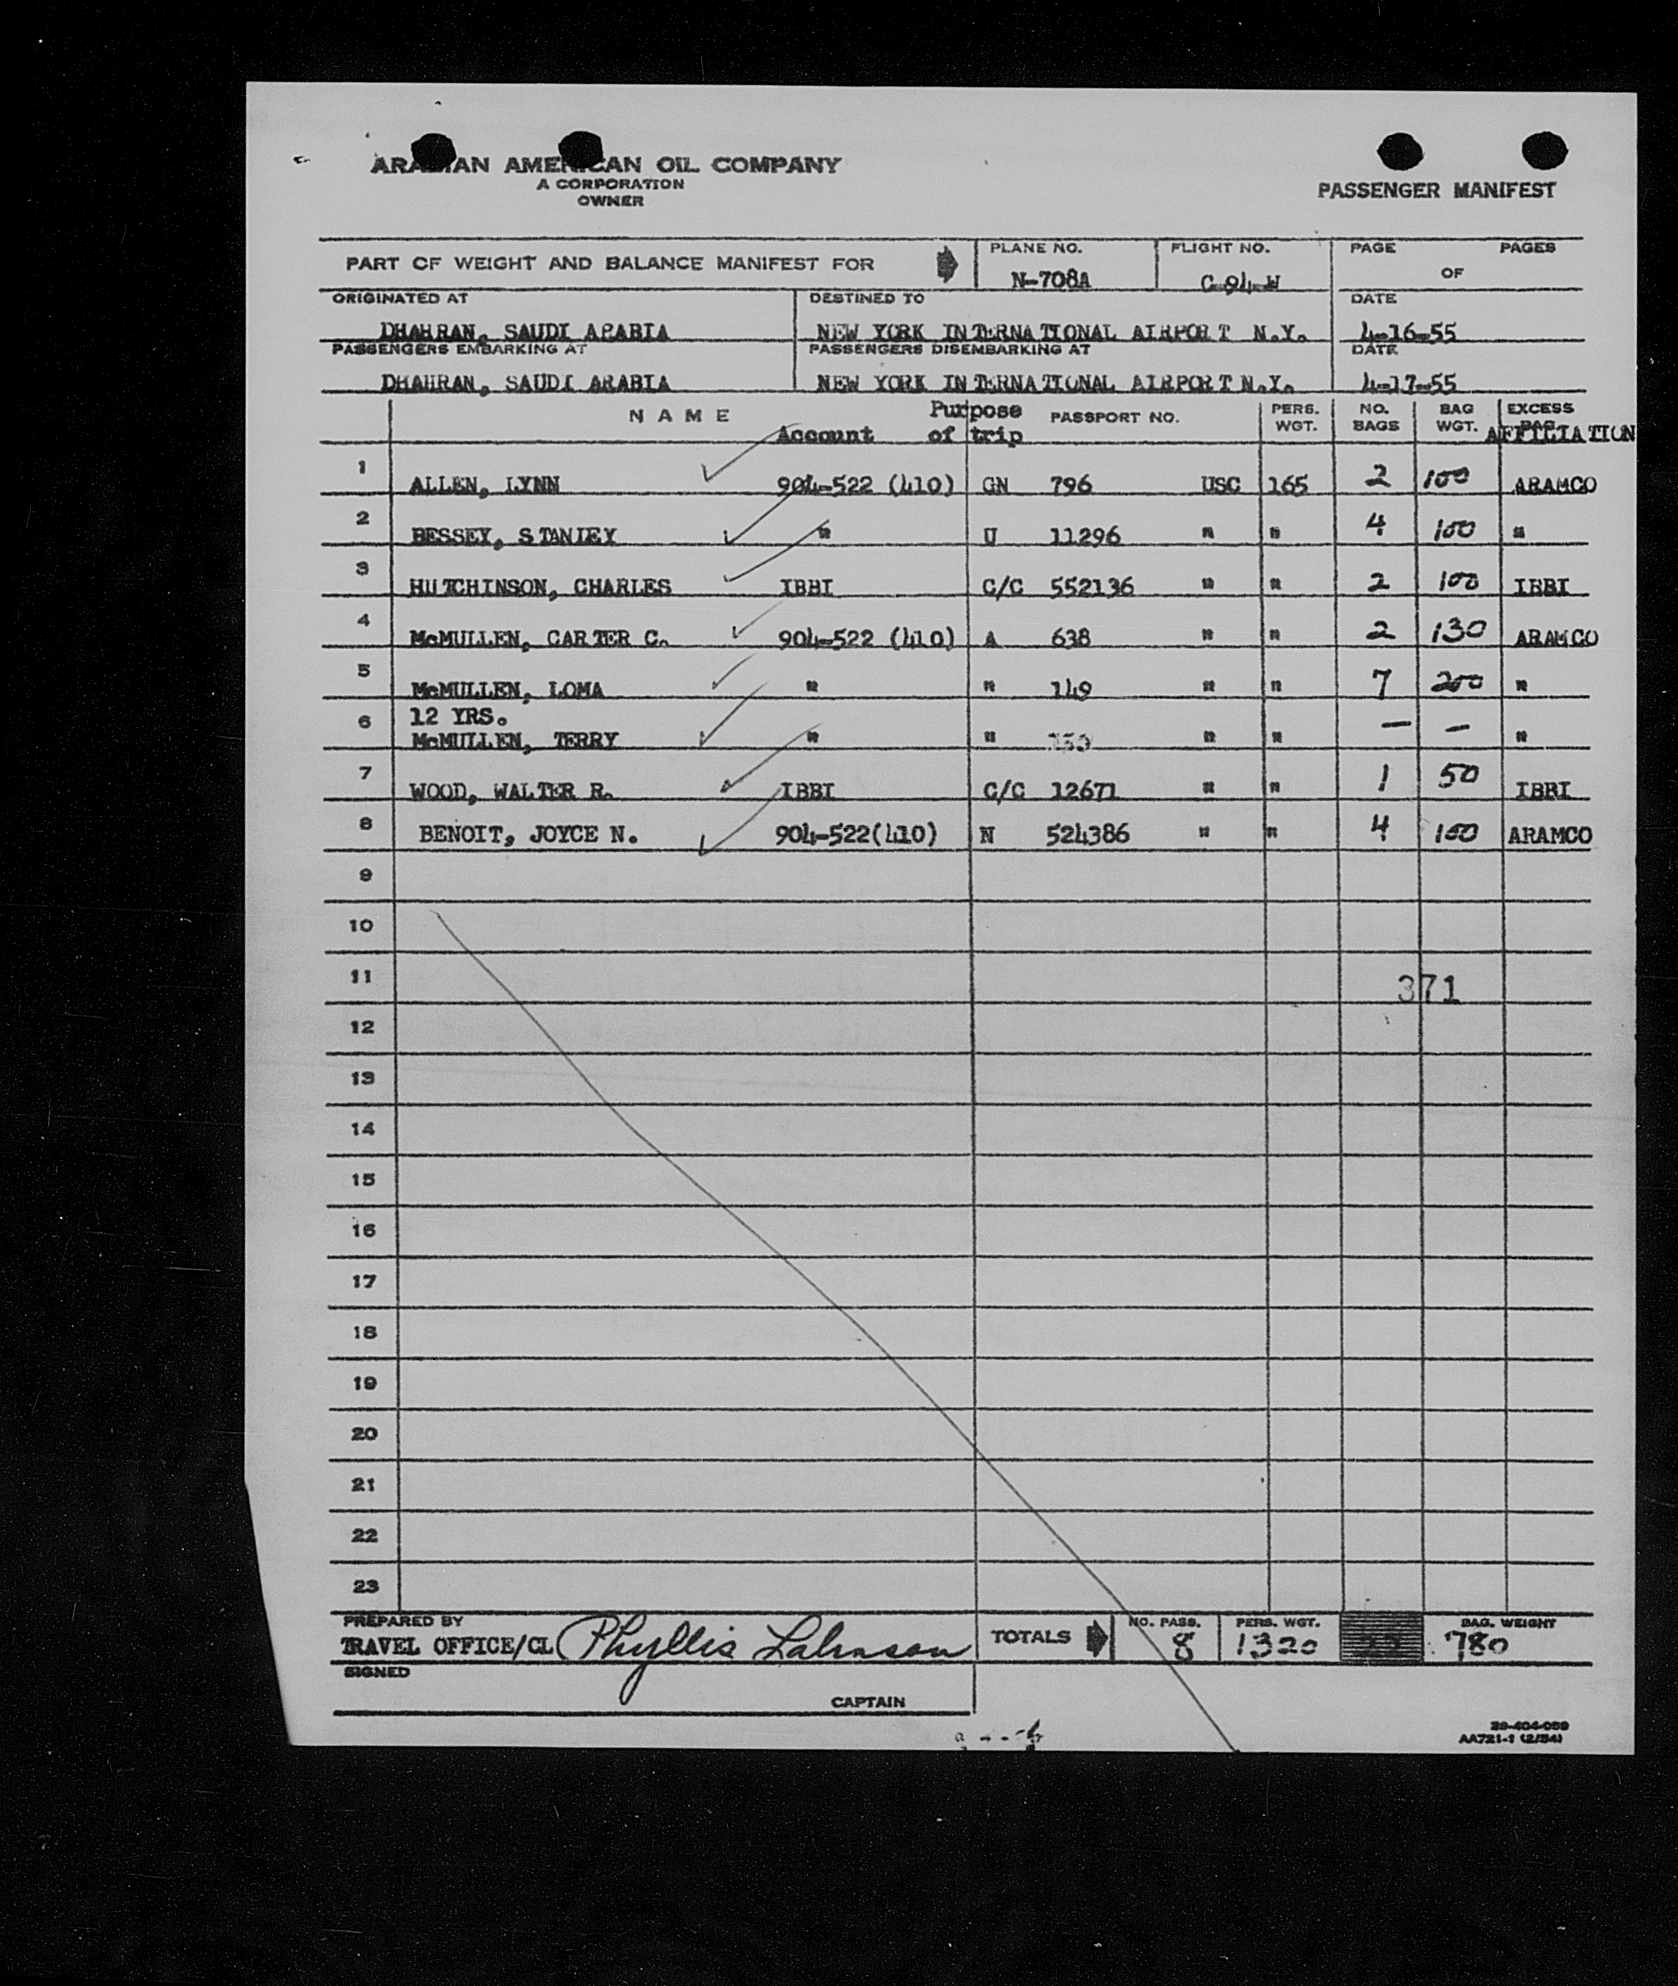 ARABIAN AMERICAN OIL COMPANY
A CORPORATION
OWNER
PASSENGER MANIFEST
PART OF WEIGHT AND BALANCE MANIFEST FOR
PLANE NO. FLIGHT NO. PAGE PAGES
N-708A C-94-W OF
ORIGINATED AT DESTINED TO DATE
DHAHRAN, SAUDI ARABIA NEW YORK INTERNATIONAL AIRPORT N.Y. 4-16-55
PASSENGERS EMBARKING AT PASSENGERS DISEMBARKING AT DATE
DHAHRAN, SAUDI ARABIA NEW YORK INTERNATIONAL AIRPORT N.Y. 4-17-55
NAME Account Purpose of trip PASSPORT NO. PERS. WGT. NO. BAGS BAG WGT. EXCESS BAG. AFFILIATION
1 ALLEN, LYNN 904-522 (410) GN 796 USC 165 2 100 ARAMCO
2 BESSEY, STANLEY " U 11296 " " 4 100 "
3 HUTCHINSON, CHARLES IBBI C/C 552136 " " 2 100 IBBI
4 McMULLEN, CARTER C. 904-522 (410) A 638 " " 2 130 ARAMCO
5 McMULLEN, LOMA " " 149 " " 7 200 "
12 YRS.
6 McMULLEN, TERRY " " " " — — "
7 WOOD, WALTER R. IBBI C/C 12671 " " 1 50 IBBI
8 BENOIT, JOYCE N. 904-522(410) N 524386 " " 4 100 ARAMCO
9
10
11 371
12
13
14
15
16
17
18
19
20
21
22
23
PREPARED BY TOTALS NO. PASS. PERS. WGT. BAG. WEIGHT
TRAVEL OFFICE/CL Phyllis 8 1320 22 780
SIGNED
CAPTAIN
29-404-059
AA721-1 (2/54)